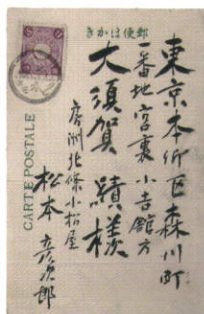 郵便はかき
CARTE POSTALE
東京本郷区森川町
一番地宮裏小吉館方
大須賀績様
房州北條小松屋
松本彦次郎